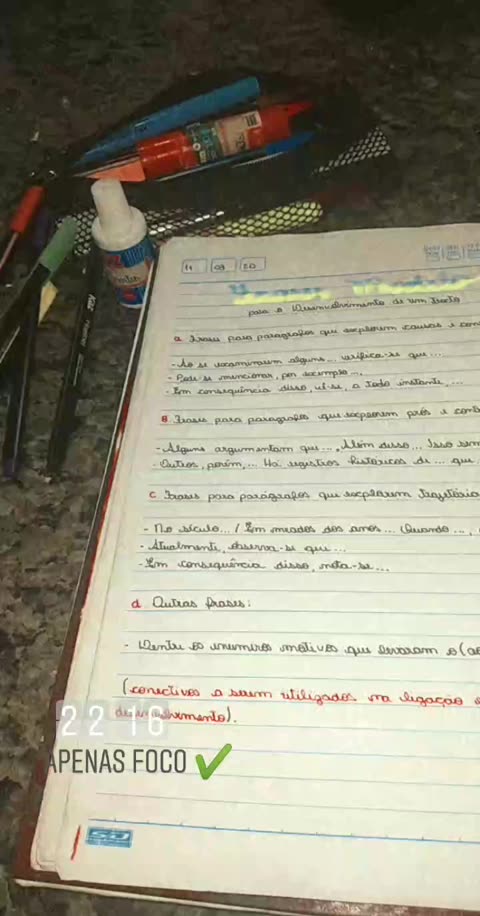 11 09 20
para o Desenvolvimento de um texto
a Frases para parágrafos que explorem causas e con
- Ao se examinarem alguns... verifica-se que...
- Pode-se mencionar, por exemplo...
- Em consequência disso, vê-se, a todo instante,...
B Frases para parágrafos que explorem prós e cont
- Alguns argumentam que..., Além disso... Isso sem
- Outros, porém,... Há registros históricos de ... que
C Frases para parágrafos que explorem trajetória
- No século... / Em meados dos anos... Quando...,
- Atualmente, observa-se que...
- Em consequência disso, nota-se...
d Outras frases:
- Dentre os inumeros motivos que levaram o(ao
(conectivos a serem utilizados na ligação
desenvolvimento).
22 16
APENAS FOCO
SD